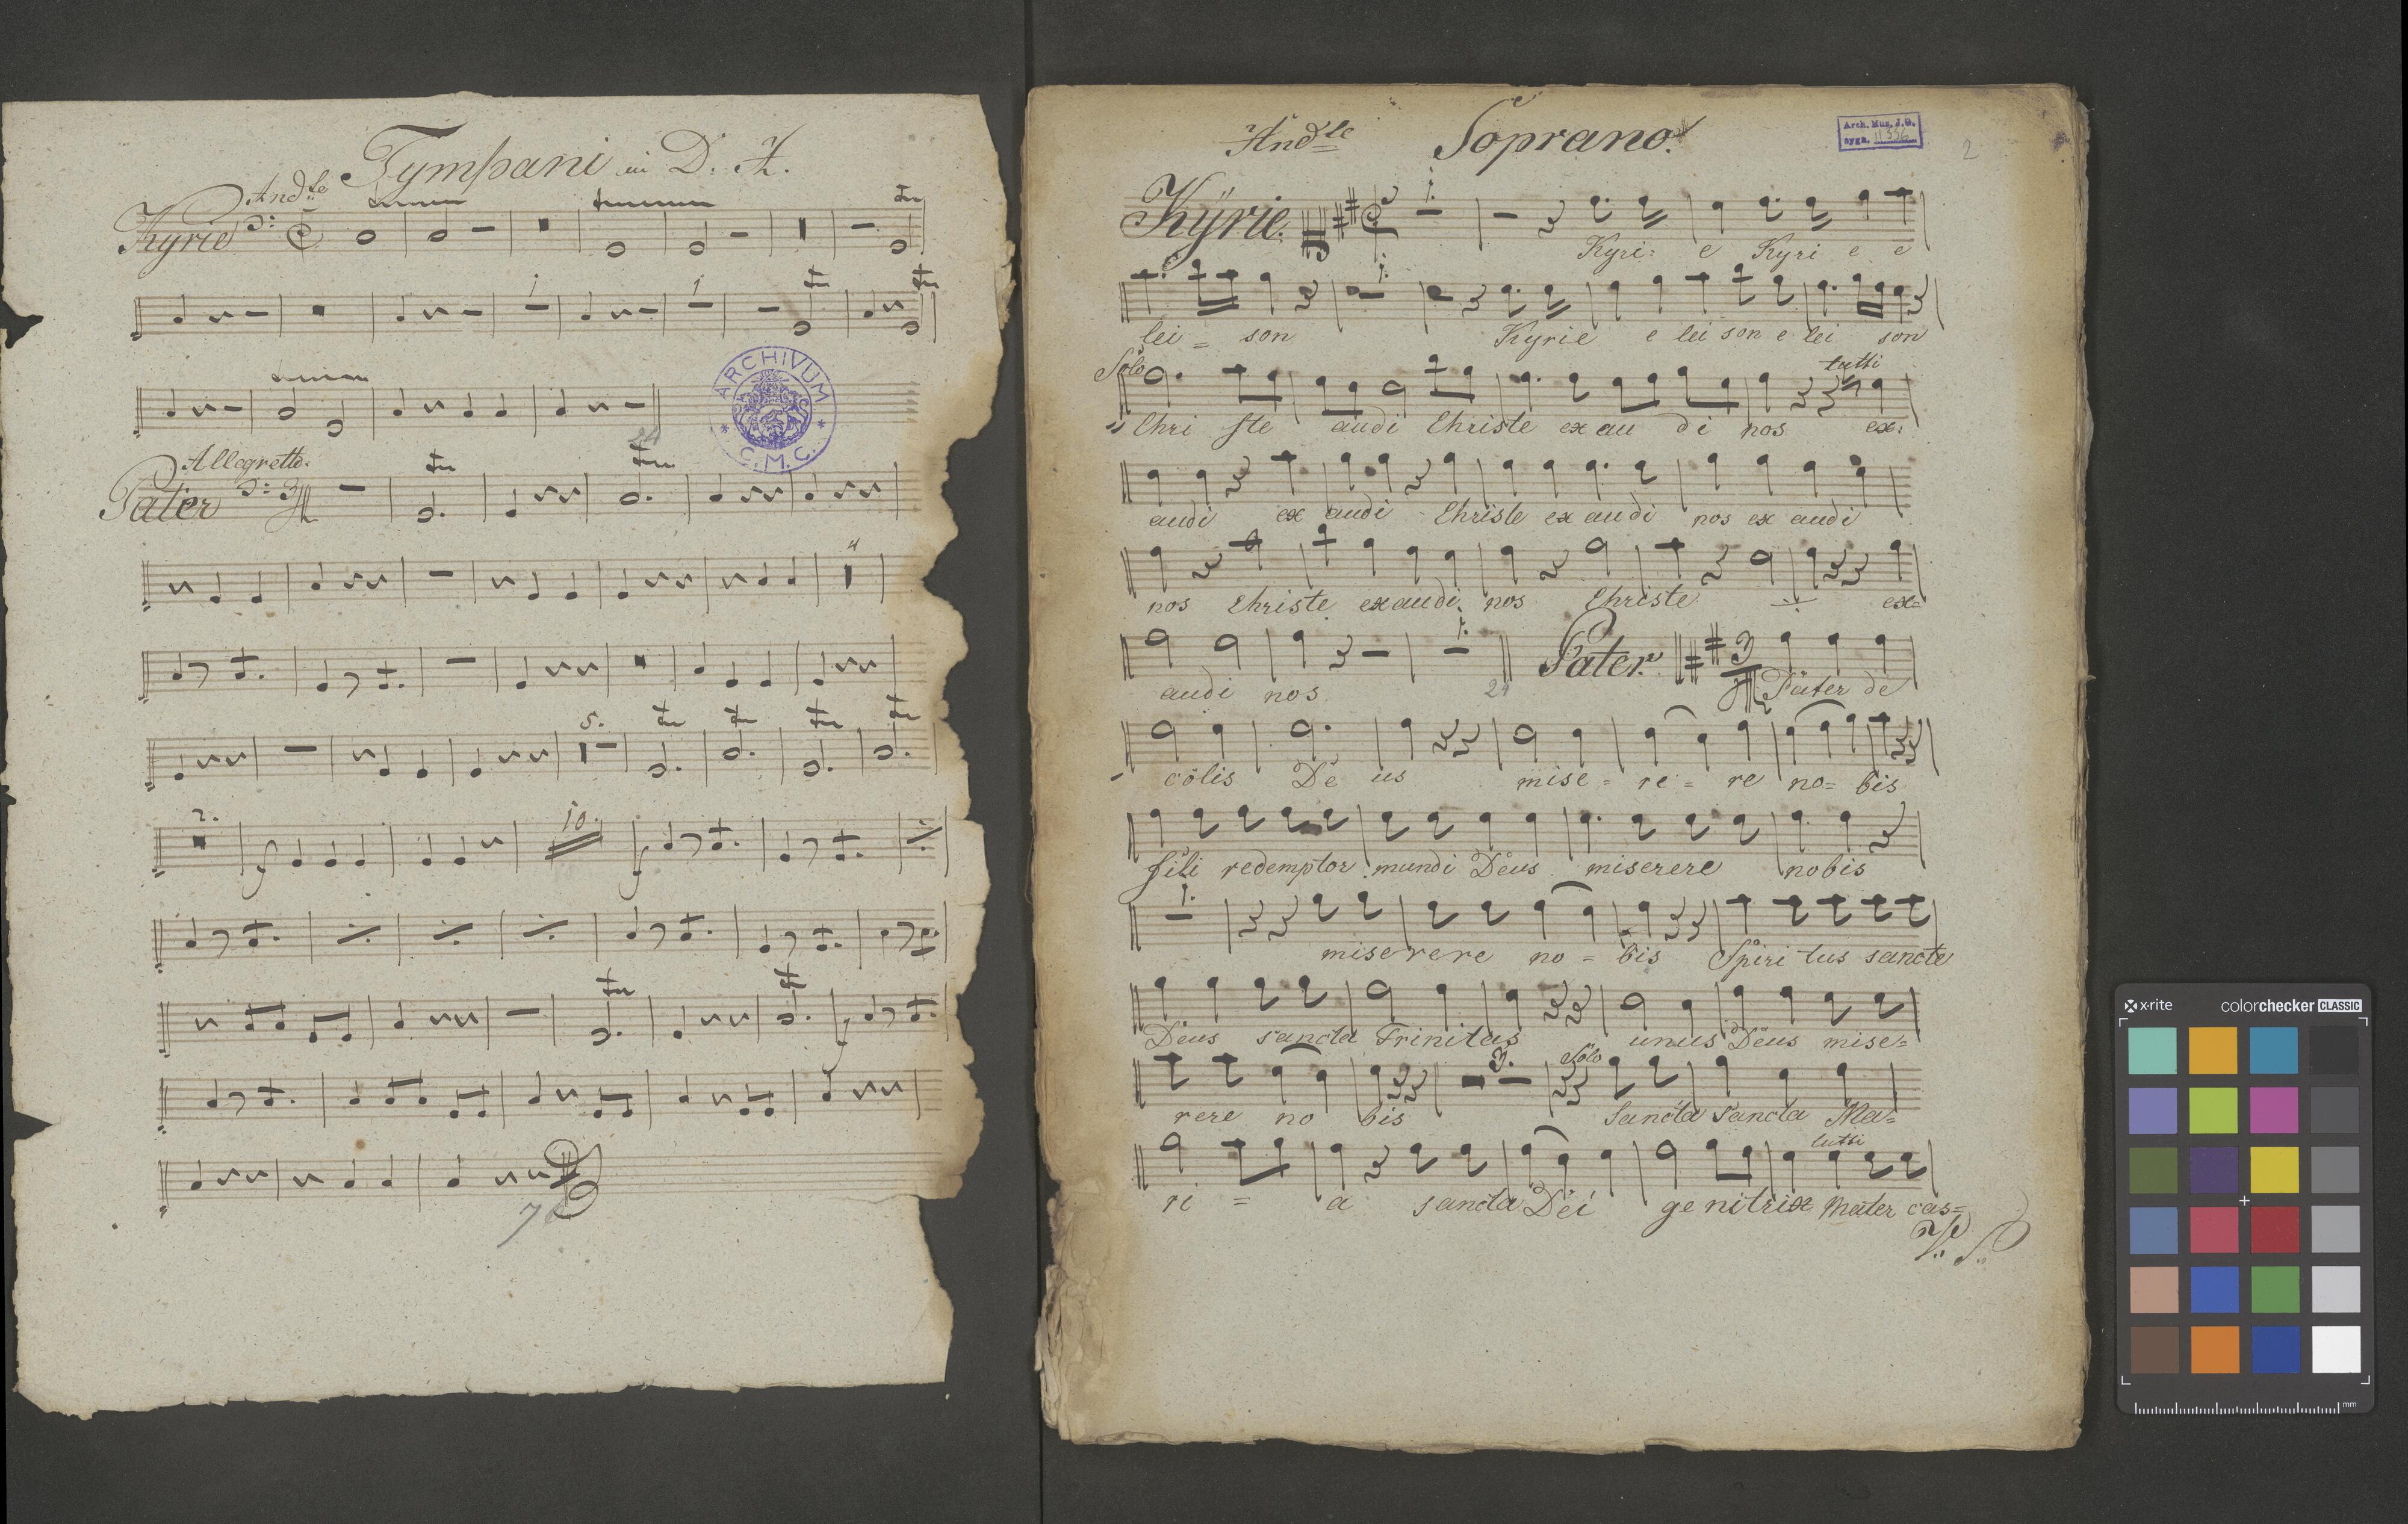 Tympani in D. A.
Andte
Kyrie
1
1
ARCHIVUM
C. M. C.
24
Allegretto.
Pater
4
5.
2.
10.
Andle
Soprano.
Arch. Muz. J.G.
sygn. II 336
2
Kÿrie.
1.
Kyri= e Kyri e e
1.
lei = son Kyrie e lei son e lei son
Solo
tutti
Chri ste audi Christe ex au di nos ex=
audi ex audi Christe ex audi nos ex audi
nos Christe exaudi nos Christe ex=
1.
Pater.
3
audi nos
24
Pater de
cölis De us mise = re = re no= bis
fili redemptor mundi Deus miserere nobis
1.
miserere no = bis Spiri tus sancte
Deus sancta Trinitas unus Deus mise=
3.
Solo
rere no bis Sancta Sancta Ma=
tutti
ri = a sancta Dei genitrix Mater cas=
V: S:
x-rite
colorchecker CLASSIC
mm